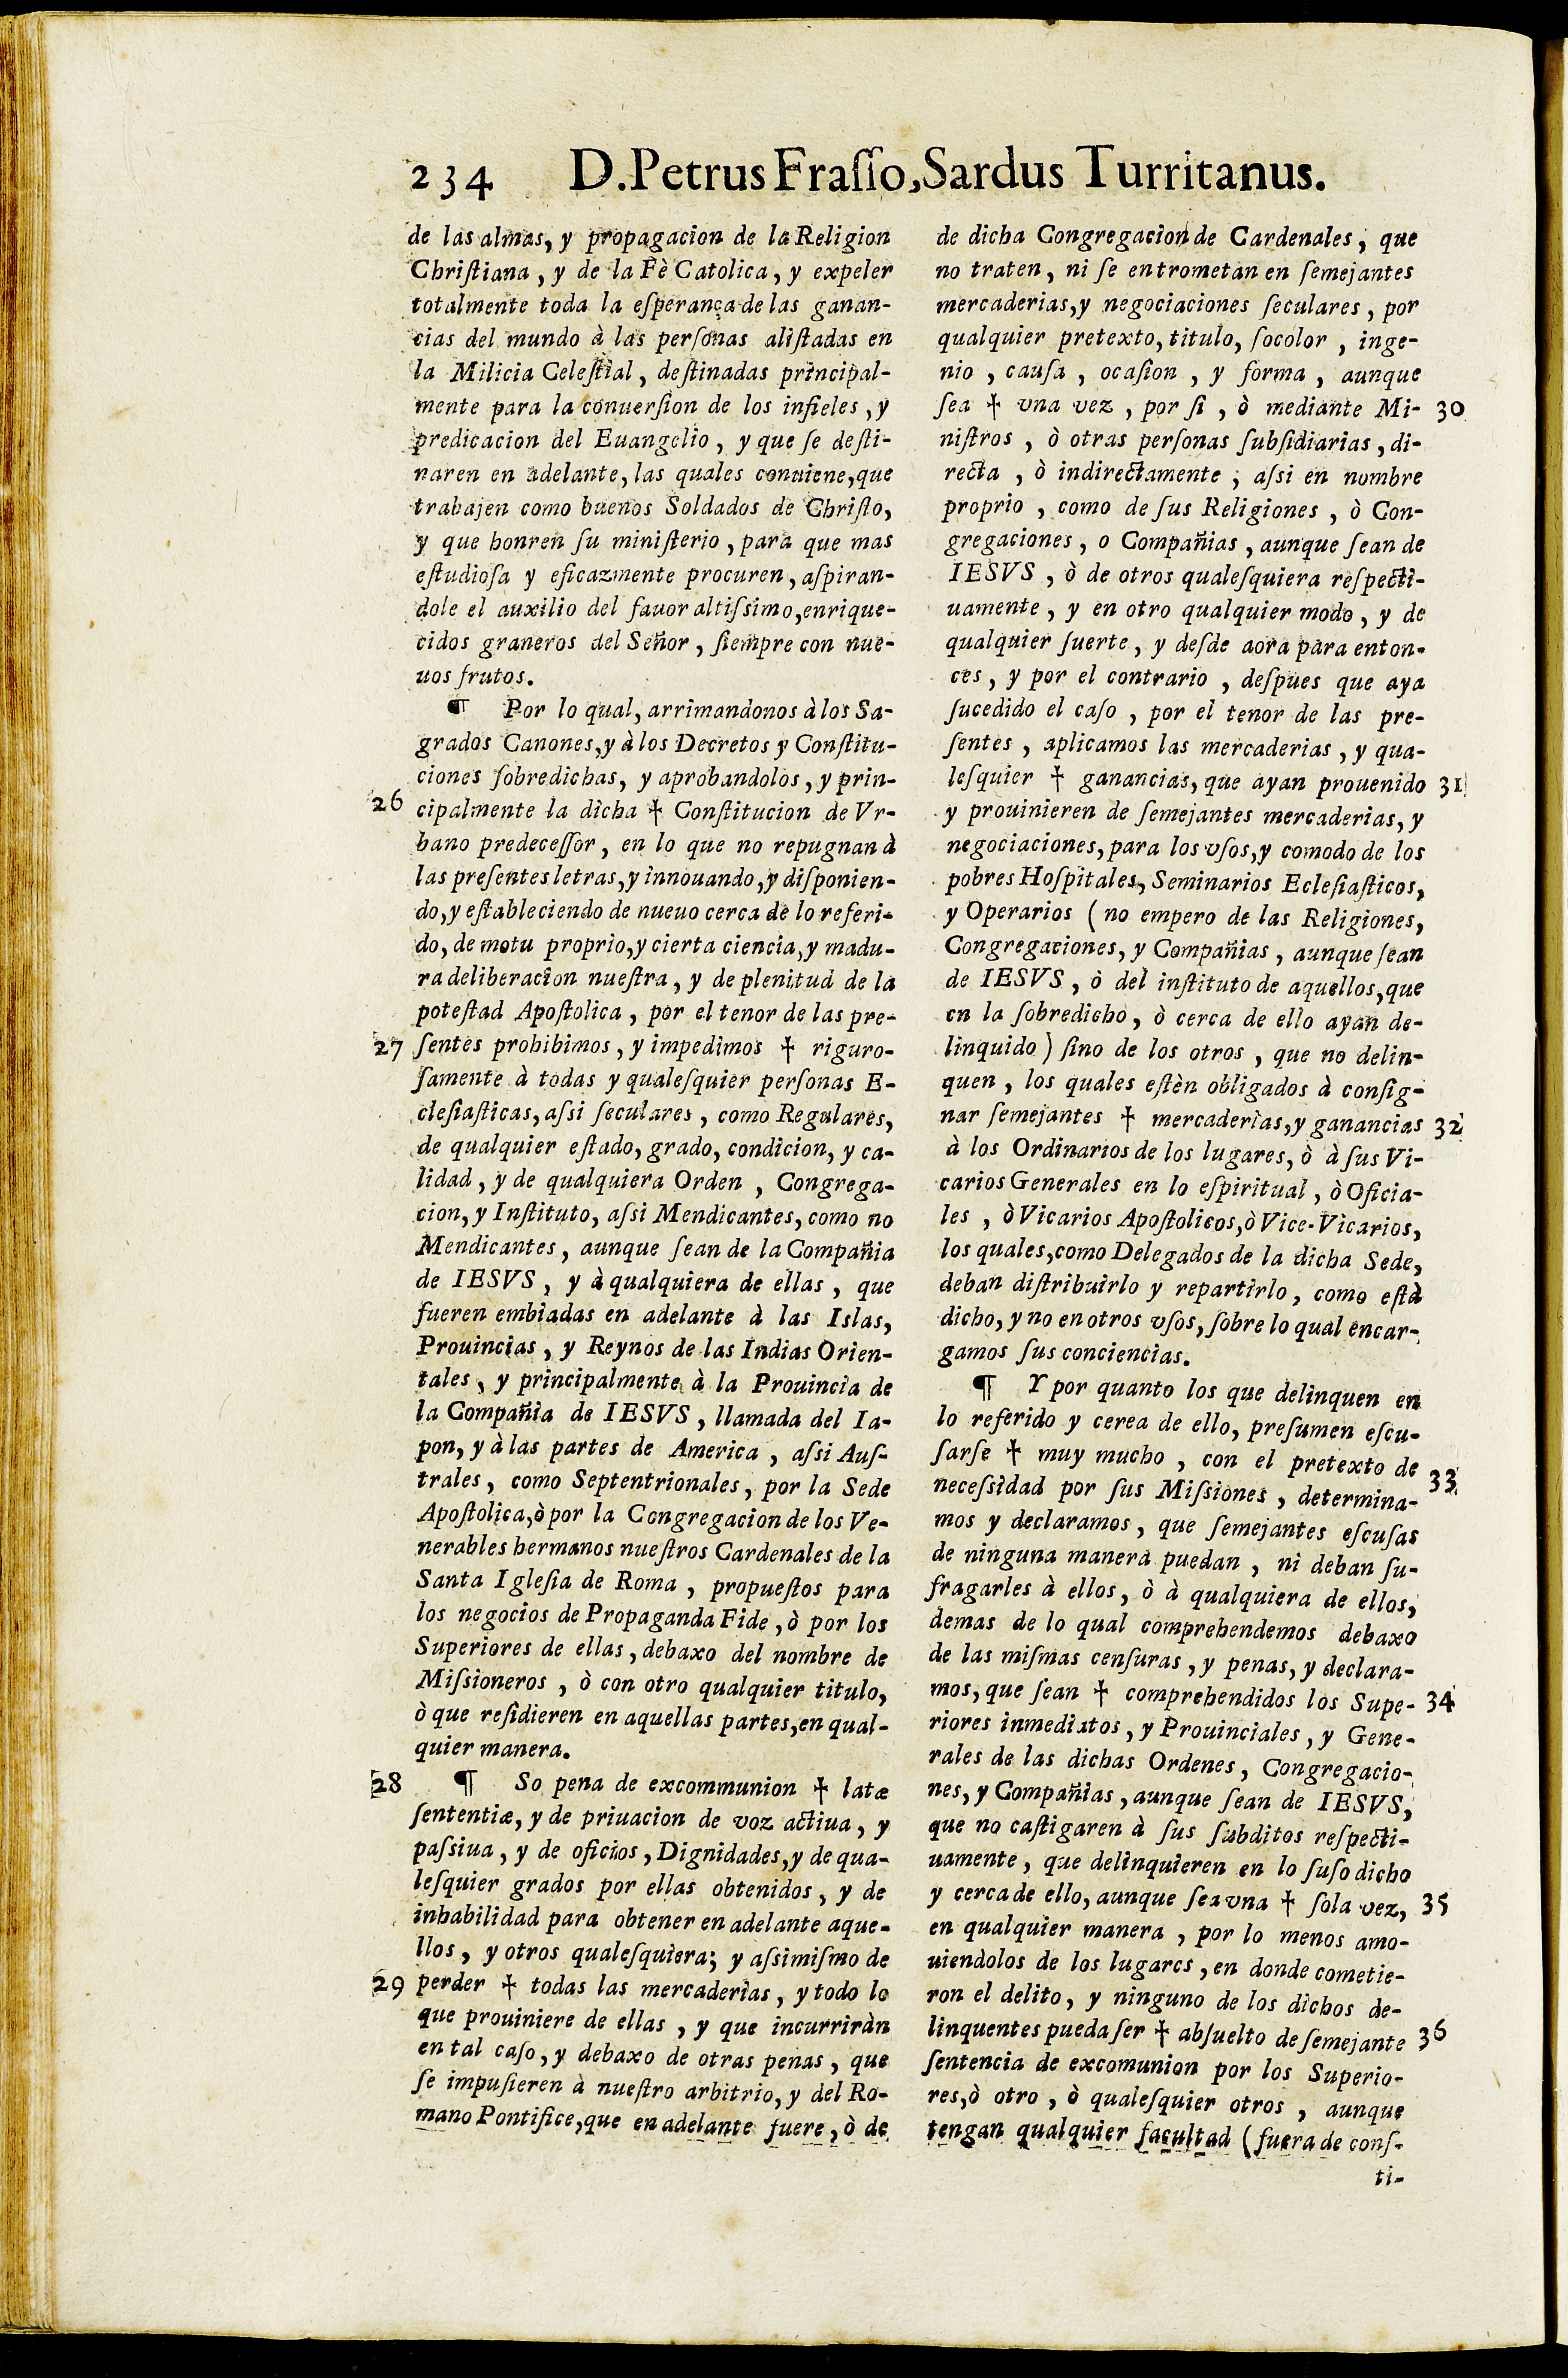 234 D. Petrus Fraſſo, Sardus Turritanus.
de las almas, y propagacion de la Religion
Chriſtiana, y de la Fè Catolica, y expeler
totalmente toda la eſperança de las ganan-
cias del mundo à las perſonas aliſtadas en
la Milicia Celeſtial, deſtinadas principal-
mente para la conuerſion de los infieles, y
predicacion del Euangelio, y que ſe deſti-
naren en adelante, las quales conuiene, que
trabajen como buenos Soldados de Chriſto,
y que honren ſu miniſterio, para que mas
eſtudioſa y eficazmente procuren, aſpiran-
dole el auxilio del fauor altiſsimo, enrique-
cidos graneros del Señor, ſiempre con nue-
uos frutos.
¶ Por lo qual, arrimandonos à los Sa-
grados Canones, y à los Decretos y Conſtitu-
ciones ſobredichas, y aprobandolos, y prin-
26 cipalmente la dicha † Conſtitucion de Vr-
bano predeceſſor, en lo que no repugnan à
las preſentes letras, y innouando, y diſponien-
do, y eſtableciendo de nueuo cerca de lo referi-
do, de motu proprio, y cierta ciencia, y madu-
ra deliberacion nueſtra, y de plenitud de la
poteſtad Apoſtolica, por el tenor de las pre-
27 ſentes prohibimos, y impedimos † riguro-
ſamente à todas y qualeſquier perſonas E-
cleſiaſticas, aſsi ſeculares, como Regulares,
de qualquier eſtado, grado, condicion, y ca-
lidad, y de qualquiera Orden, Congrega-
cion, y Inſtituto, aſsi Mendicantes, como no
Mendicantes, aunque ſean de la Compañia
de IESVS, y à qualquiera de ellas, que
fueren embiadas en adelante à las Islas,
Prouincias, y Reynos de las Indias Orien-
tales, y principalmente à la Prouincia de
la Compañia de IESVS, llamada del Ia-
pon, y à las partes de America, aſsi Auſ-
trales, como Septentrionales, por la Sede
Apoſtolica, ò por la Congregacion de los Ve-
nerables hermanos nueſtros Cardenales de la
Santa Igleſia de Roma, propueſtos para
los negocios de Propaganda Fide, ò por los
Superiores de ellas, debaxo del nombre de
Miſsioneros, ò con otro qualquier titulo,
ò que reſidieren en aquellas partes, en qual-
quier manera.
28 ¶ So pena de excommunion † latæ
ſententiæ, y de priuacion de voz actiua, y
paſsiua, y de oficios, Dignidades, y de qua-
leſquier grados por ellas obtenidos, y de
inhabilidad para obtener en adelante aque-
llos, y otros qualeſquiera; y aſsimiſmo de
29 perder † todas las mercaderias, y todo lo
que prouiniere de ellas, y que incurriràn
en tal caſo, y debaxo de otras penas, que
ſe impuſieren à nueſtro arbitrio, y del Ro-
mano Pontifice, que en adelante fuere, ò de
de dicha Congregacion de Cardenales, que
no traten, ni ſe entrometan en ſemejantes
mercaderias, y negociaciones ſeculares, por
qualquier pretexto, titulo, ſocolor, inge-
nio, cauſa, ocaſion, y forma, aunque
ſea † vna vez, por ſi, ò mediante Mi- 30
niſtros, ò otras perſonas ſubſidiarias, di-
recta, ò indirectamente, aſsi en nombre
proprio, como de ſus Religiones, ò Con-
gregaciones, o Compañias, aunque ſean de
IESVS, ò de otros qualeſquiera reſpecti-
uamente, y en otro qualquier modo, y de
qualquier ſuerte, y deſde aora para enton-
ces, y por el contrario, deſpues que aya
ſucedido el caſo, por el tenor de las pre-
ſentes, aplicamos las mercaderias, y qua-
leſquier † ganancias, que ayan prouenido 31
y prouinieren de ſemejantes mercaderias, y
negociaciones, para los vſos, y comodo de los
pobres Hoſpitales, Seminarios Ecleſiaſticos,
y Operarios (no empero de las Religiones,
Congregaciones, y Compañias, aunque ſean
de IESVS, ò del inſtituto de aquellos, que
en la ſobredicho, ò cerca de ello ayan de-
linquido) ſino de los otros, que no delin-
quen, los quales eſtèn obligados à conſig-
nar ſemejantes † mercaderias, y ganancias 32
à los Ordinarios de los lugares, ò à ſus Vi-
carios Generales en lo eſpiritual, ò Oficia-
les, ò Vicarios Apoſtolicos, ò Vice-Vicarios,
los quales, como Delegados de la dicha Sede,
deban diſtribuirlo y repartirlo, como eſtà
dicho, y no en otros vſos, ſobre lo qual encar-
gamos ſus conciencias.
¶ Y por quanto los que delinquen en
lo referido y cerea de ello, preſumen eſcu-
ſarſe † muy mucho, con el pretexto de 33
neceſsidad por ſus Miſsiones, determina-
mos y declaramos, que ſemejantes eſcuſas
de ninguna manera puedan, ni deban ſu-
fragarles à ellos, ò à qualquiera de ellos,
demas de lo qual comprehendemos debaxo
de las miſmas cenſuras, y penas, y declara-
mos, que ſean † comprehendidos los Supe- 34
riores inmediatos, y Prouinciales, y Gene-
rales de las dichas Ordenes, Congregacio-
nes, y Compañias, aunque ſean de IESVS,
que no caſtigaren à ſus ſubditos reſpecti-
uamente, que delinquieren en lo ſuſo dicho
y cerca de ello, aunque ſea vna † ſola vez, 35
en qualquier manera, por lo menos amo-
uiendolos de los lugares, en donde cometie-
ron el delito, y ninguno de los dichos de-
linquentes pueda ſer † abſuelto de ſemejante 36
ſentencia de excomunion por los Superio-
res, ò otro, ò qualeſquier otros, aunque
tengan qualquier facultad (fuera de conſ-
ti-